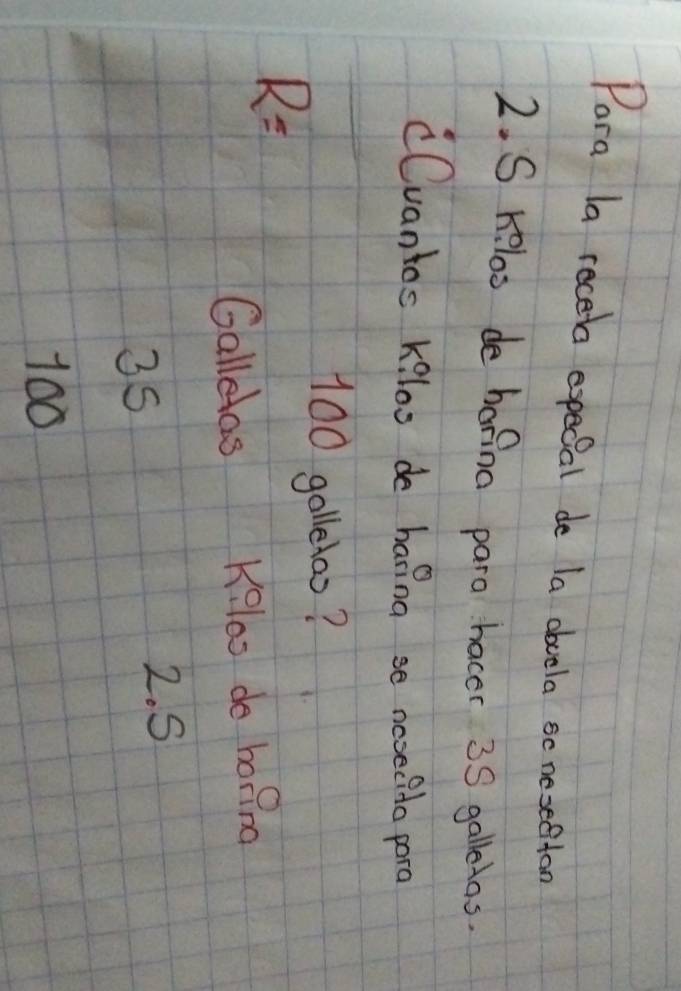 Para la receta especial de la abuela se nesecitan
2.5 kilos de harina para hacer 35 galletas.
¿Cuantos kilos de harina se nesecita para
100 galletas?
R=
Galletas kilos de harina
35 2.5
100